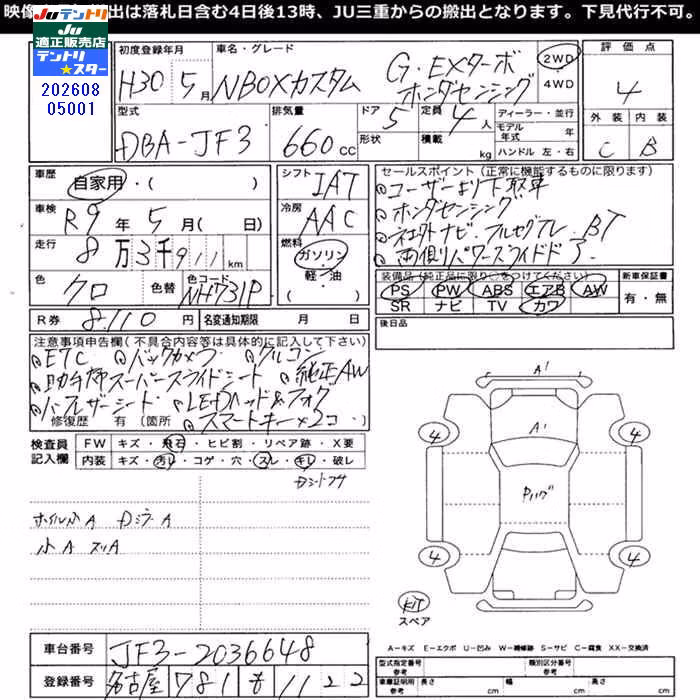 映像 出は落札日含む4日後13時、JU三重からの搬出となります。下見代行不可。
JUテントリ
JU
適正販売店
テントリ
★スター
202608
05001
初度登録年月 車名・グレード
H30 5月 NBOXカスタム G・EXターボ ホンダセンシング
2WD
・
4WD
評価点
4
外装 内装
C B
型式 排気量 ドア 定員 ディーラー・並行
DBA-JF3 660cc 5 4人
形状 積載 kg
モデル年式 年
ハンドル 左・右
車歴 自家用・( )
車検 R9年 5月( 日)
走行 8万3千911km
色 クロ 色替 色コード NH731P
シフト IAT
冷房 AAC
燃料 ガソリン・軽油 ( )
R券 8,110円 名変通知期限 月 日
セールスポイント(正常に機能するものに限ります)
ユーザーより下取車
ホンダセンシング
ナビ フルセグTV BT
両側パワースライドドア
装備品(純正品に限り○をつけてください) 新車保証書
PS PW ABS エアB AW 有・無
SR ナビ TV カワ
後日品
注意事項申告欄(不具合内容等は具体的に記入して下さい)
ETC バックカメラ クルコン
助手席スーパースライドシート 純正AW
ハーフレザーシート LEDヘッド&フォグ
修復歴 有(箇所 スマートキー×2コ
検査員記入欄
FW キズ・飛石・ヒビ割・リペア跡・X要
内装 キズ・汚れ・コゲ・穴・スレ・キレ・破レ
A1
A1
4 4
4 4
キズ小A Dミラー A
小A スリA
スペア
A=キズ E=エクボ U=凹み W=補修跡 S=サビ C=腐食 XX=交換済
車台番号 JF3-2036648
登録番号 名古屋 781 も 1122
型式指定番号 参考 類別区分番号 参考
車庫証明用 参考 長さ cm 幅 cm 高さ cm